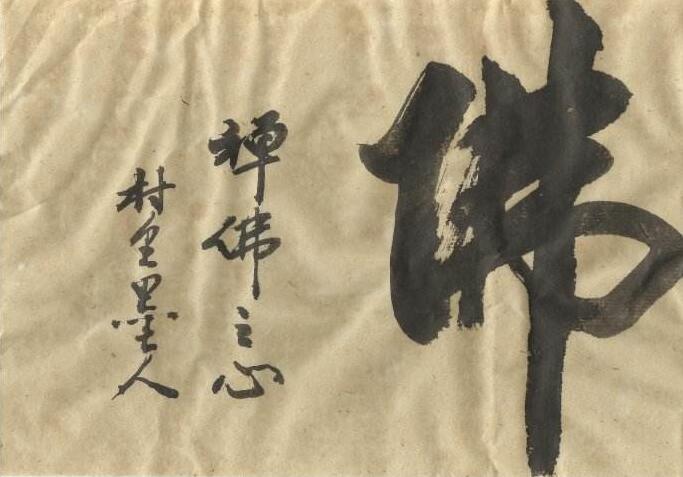 佛
禅佛之心
村里墨人